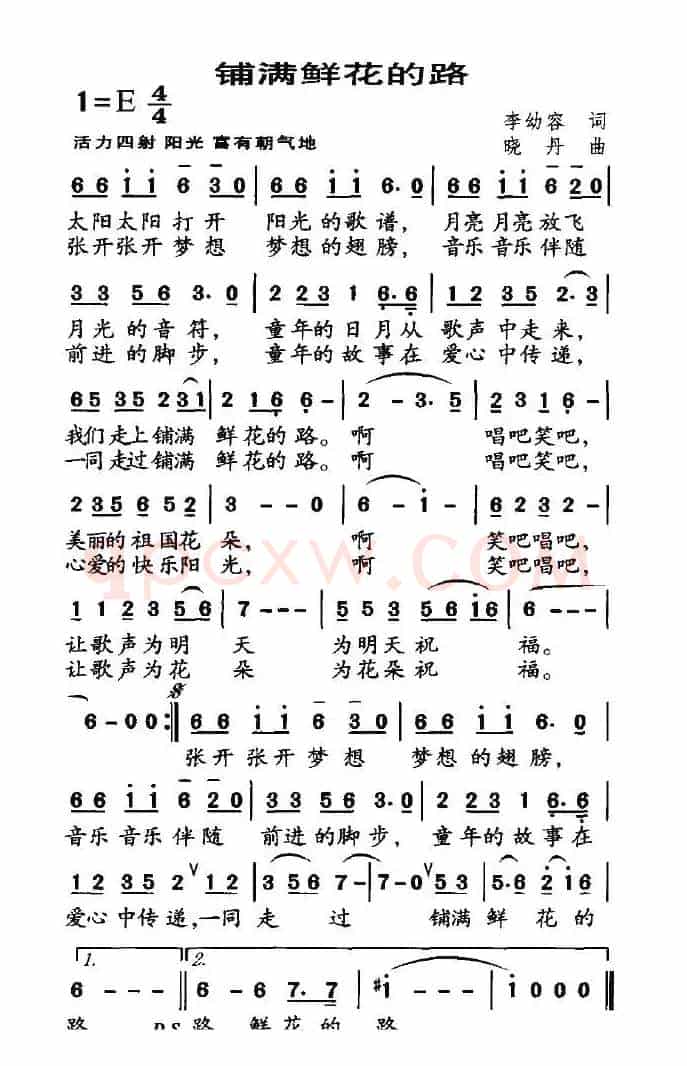 铺满鲜花的路
1=E 4/4
李幼容 词
活力四射 阳光 富有朝气地
晓丹 曲
6 6 i i 6 3 0 | 6 6 i i 6· 0 | 6 6 i i 6 2 0
太阳太阳打开 阳光的歌谱，月亮月亮放飞
张开张开梦想 梦想的翅膀，音乐音乐伴随
3 3 5 6 3· 0 | 2 2 3 1 6·6 | 1 2 3 5 2·3
月光的音符，童年的日月从 歌声中走来，
前进的脚步，童年的故事在 爱心中传递，
65 35 2 31 | 2 1 6 6 - | 2 - 3· 5 | 2 3 1 6 -
我们走上铺满 鲜花的路。啊 唱吧笑吧，
一同走过铺满 鲜花的路。啊 唱吧笑吧，
2 35 6 52 | 3 - - 0 | 6 - i - | 6 23 2 -
美丽的祖国花朵，啊 笑吧唱吧，
心爱的快乐阳光，啊 笑吧唱吧，
1 1 2 3 5 6 | 7 - - - | 5 5 3 5 6 i6 | 6 - - -
让歌声为明天 为明天祝福。
让歌声为花朵 为花朵祝福。
6 - 0 0 :‖ 6 6 i i 6 3 0 | 6 6 i i 6· 0
张开张开梦想 梦想的翅膀，
6 6 i i 6 2 0 | 3 3 5 6 3· 0 | 2 2 3 1 6·6
音乐音乐伴随 前进的脚步，童年的故事在
1 2 3 5 2 ∨ 1 2 | 3 5 6 7 - | 7 - 0 ∨ 5 3 | 5·6 2 i6
爱心中传递，一同走过 铺满鲜花的
1. 2.
6 - - - ‖ 6 - 6 7·7 | #i - - - | i 0 0 0 ‖
路 D.S.路 鲜花的路
qpcxw.com